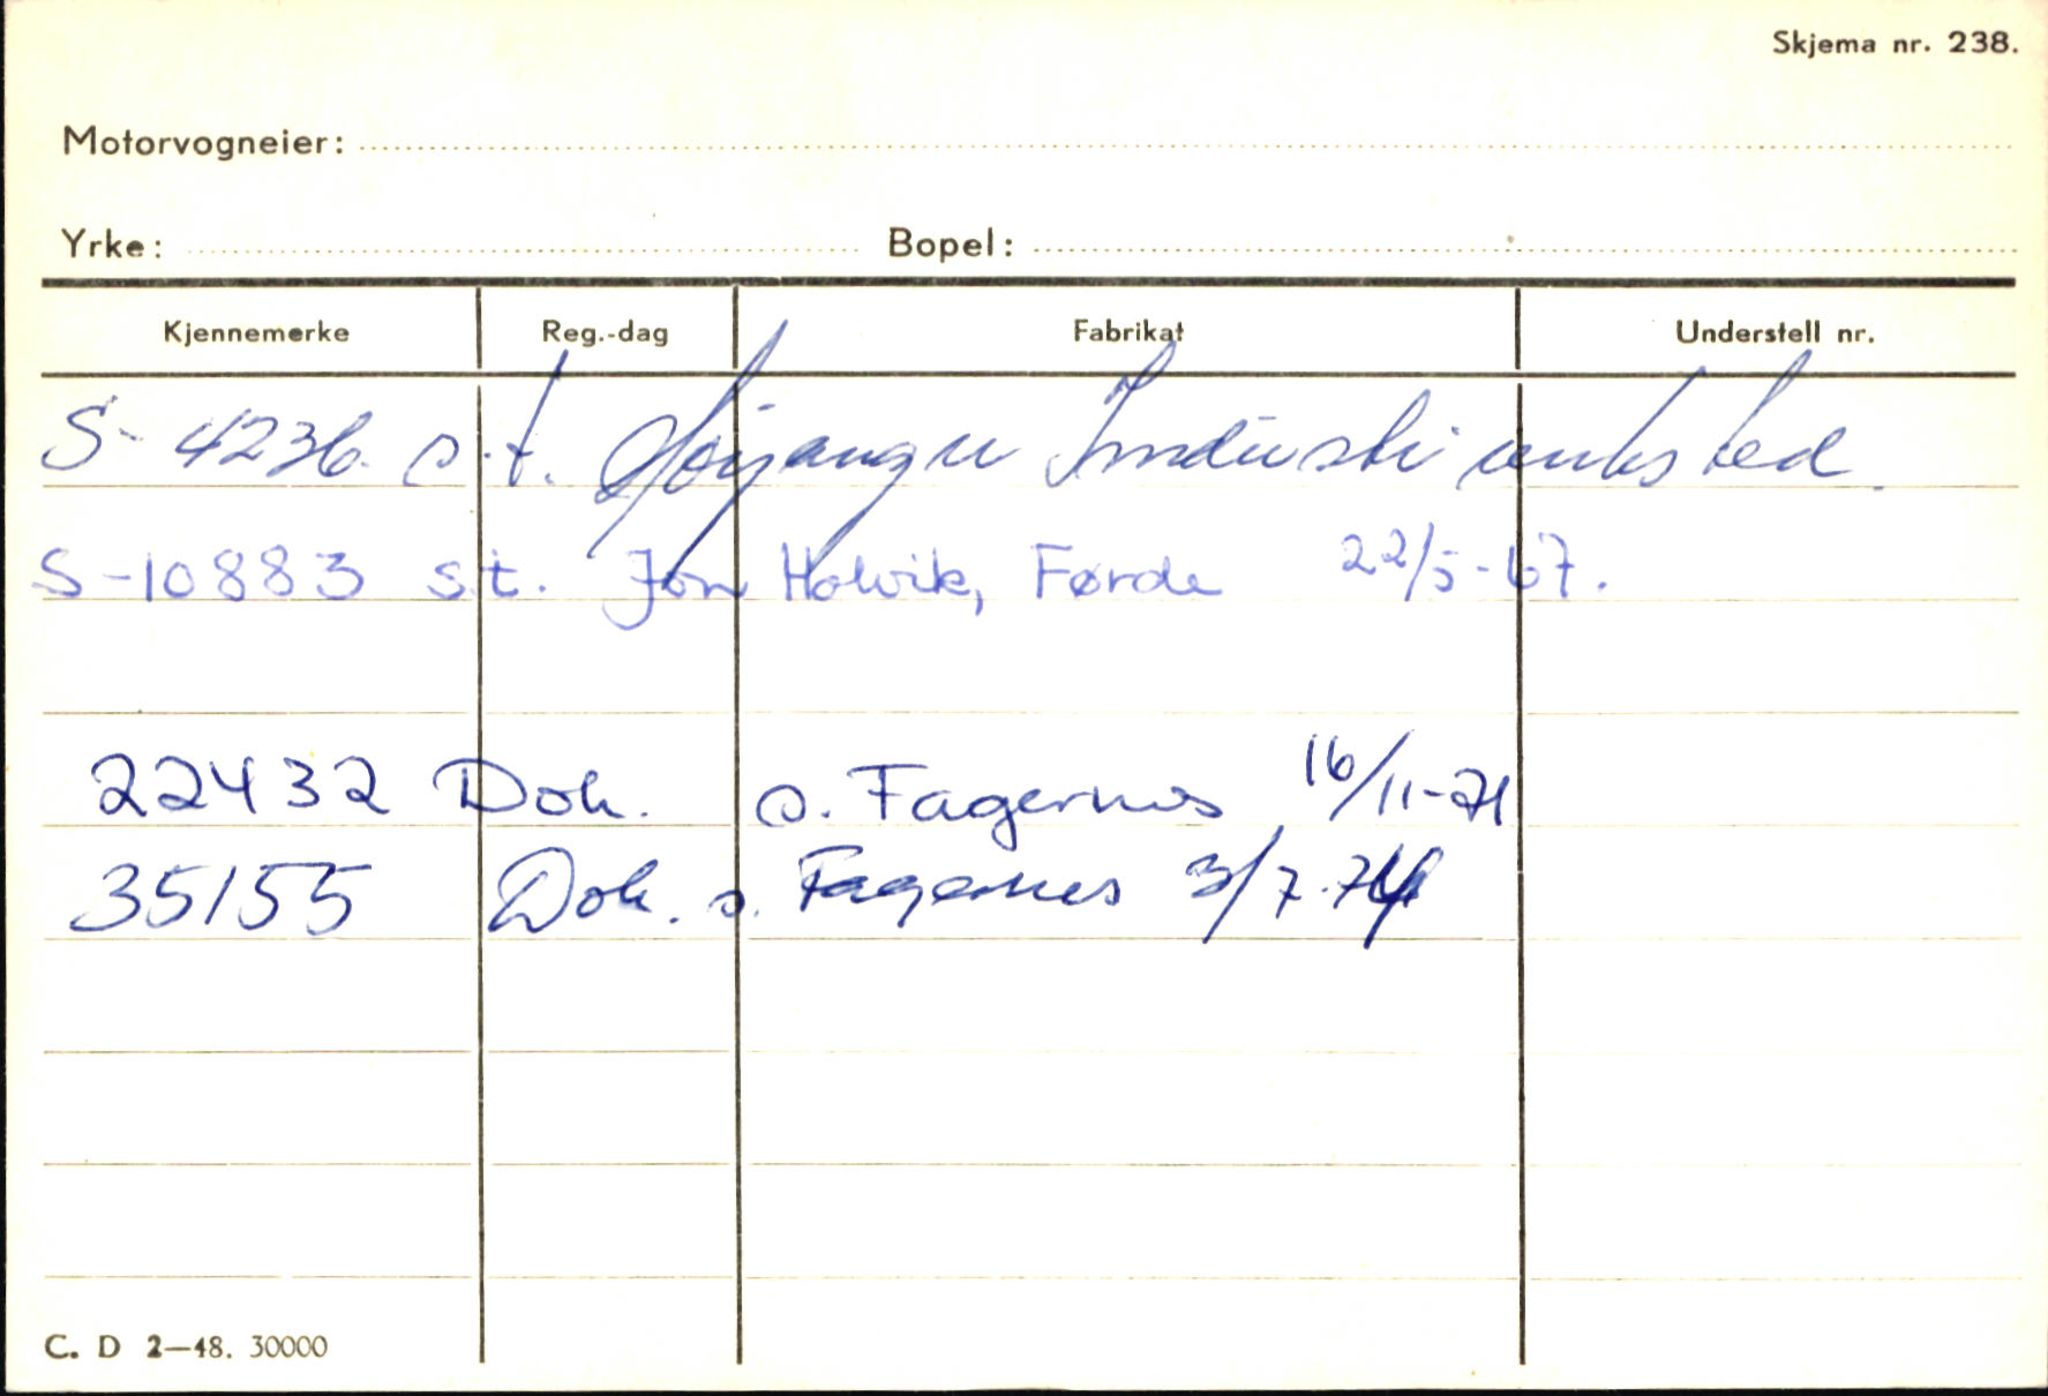 Skjema nr. 238.
Motorvogneier:
Yrke: Bopel:
Kjennemerke Reg.-dag Fabrikat Understell nr.
S- 4236 s.t. Høyanger Industriverksted.
S-10883 s.t. Jon Holvik, Førde 22/5-67.
22432 Dok. s. Fagernes 16/11-71
35155 Dok. s. Fagernes 3/7-74
C. D 2—48. 30000